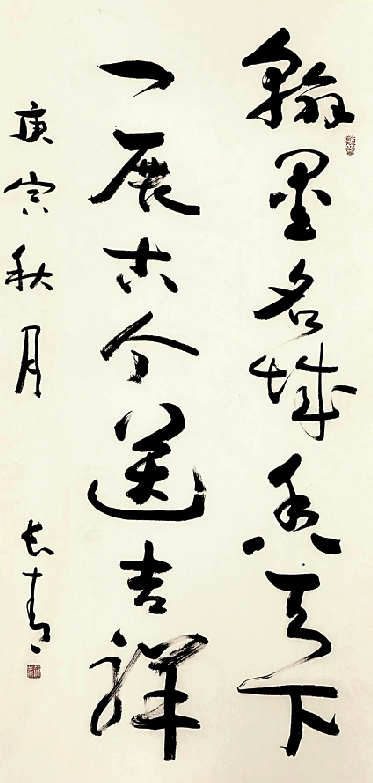 翰墨名城天下
一展古今送吉祥
庚寅秋月
长青